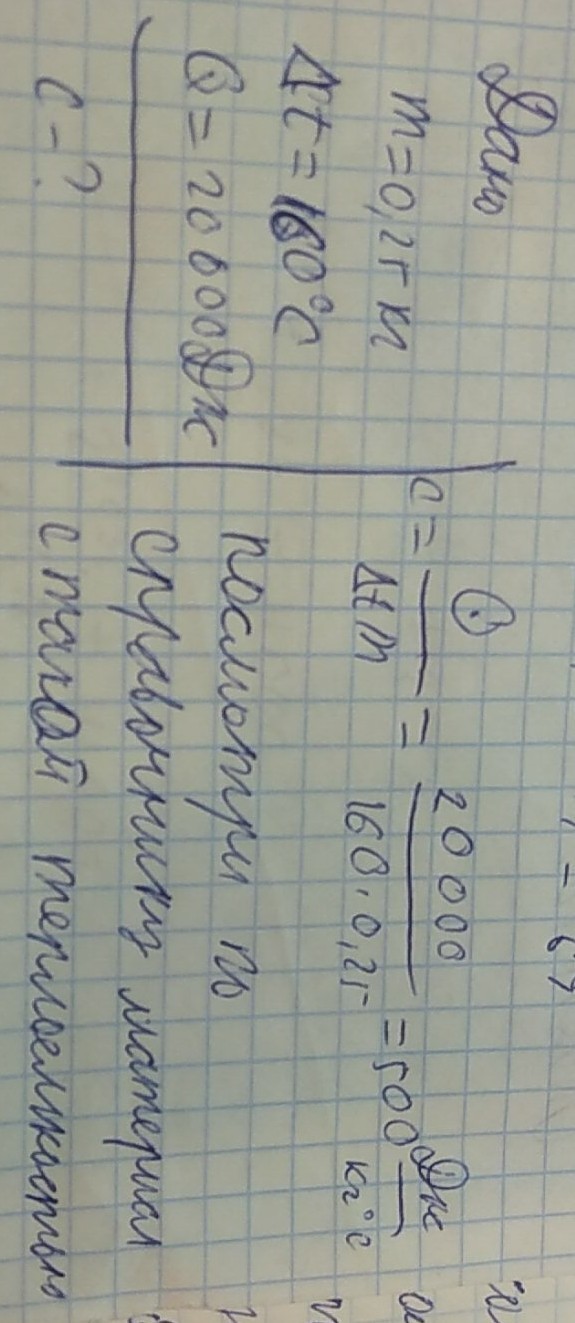 Дано
m=0,25 кг
Δt=160°C
Q=20000Дж
C-?
c= Q / Δt m = 20000 / 160·0,25 =500 Дж / кг°c
посмотри по
справочнику материал
с такой теплоемкостью